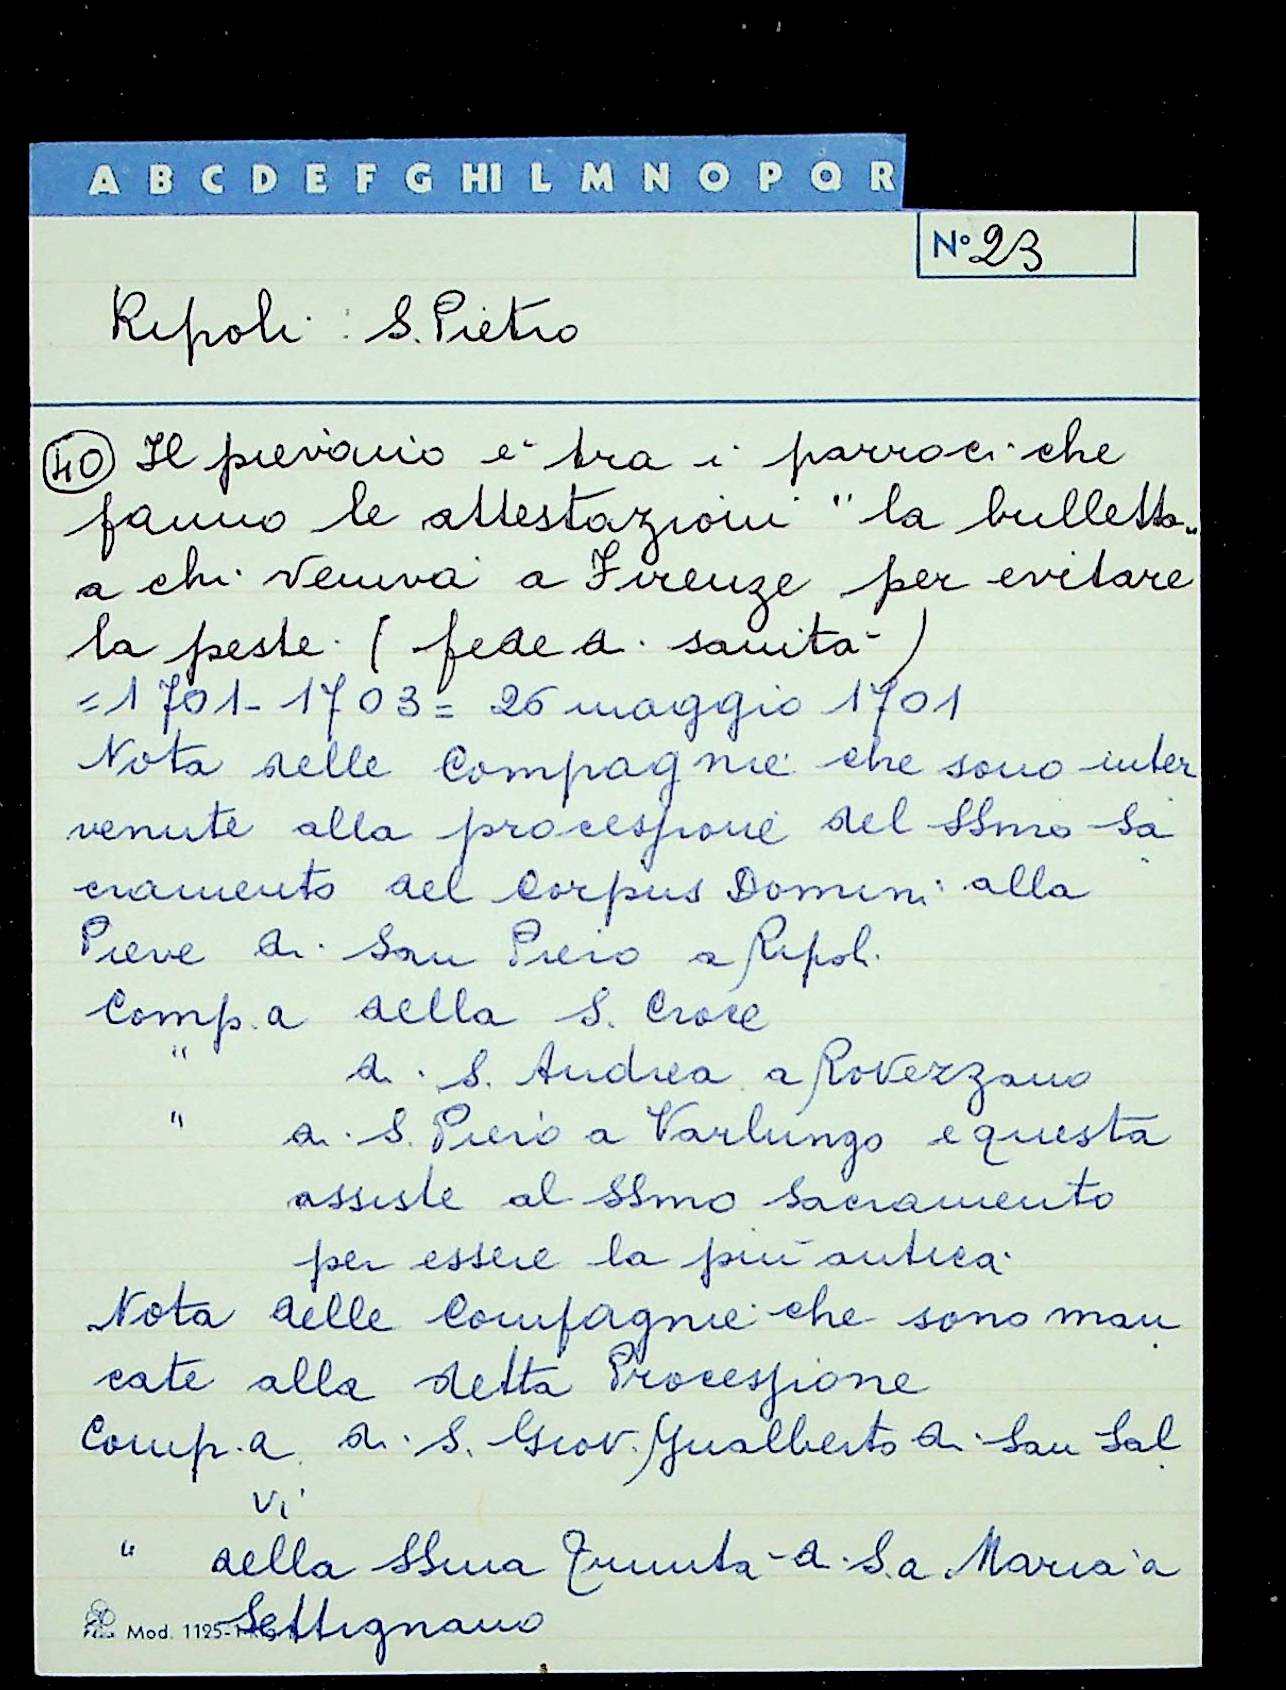 A B C D E F G HI L M N O P Q R
N° 23
Ripoli : S. Pietro
40 Il pievano è tra i parroci che
fanno le attestazioni "la bulletta"
a chi veniva a Firenze per evitare
la peste. ( fede di sanità )
=1701-1703= 26 maggio 1701
Nota delle Compagnie che sono inter
venute alla processione del SSmo Sa
cramento del Corpus Domini alla
Pieve di San Piero a Ripoli
Comp.a della S. Croce
" di S. Andrea a Rovezzano
" di S. Piero a Varlungo e questa
assiste al SSmo Sacramento
per essere la più antica.
Nota delle Compagnie che sono man
cate alla detta Processione
Comp.a di S. Giov. Gualberto di San Sal
vi
" della SSma Trinità di S.a Maria a
Settignano
Mod. 1125-